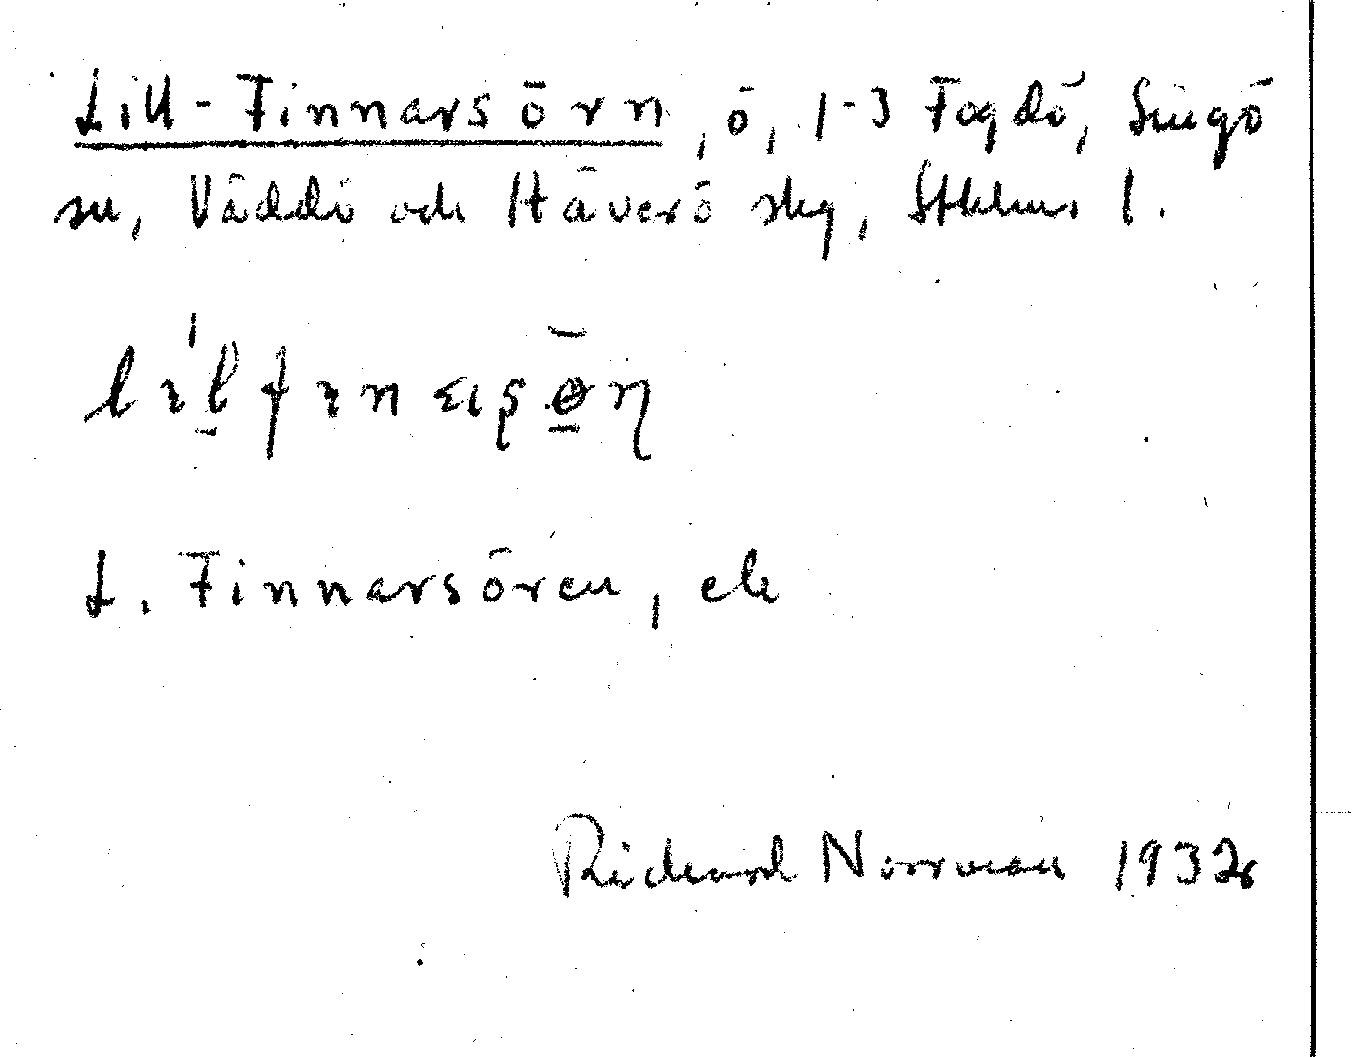 Lill-Finnarsörn, ö, 1-3 Fogdö, Singö
sn, Väddö och Häverö skg, Sthlms l.
L. Finnarsören, ek
Richard Norrman 1932